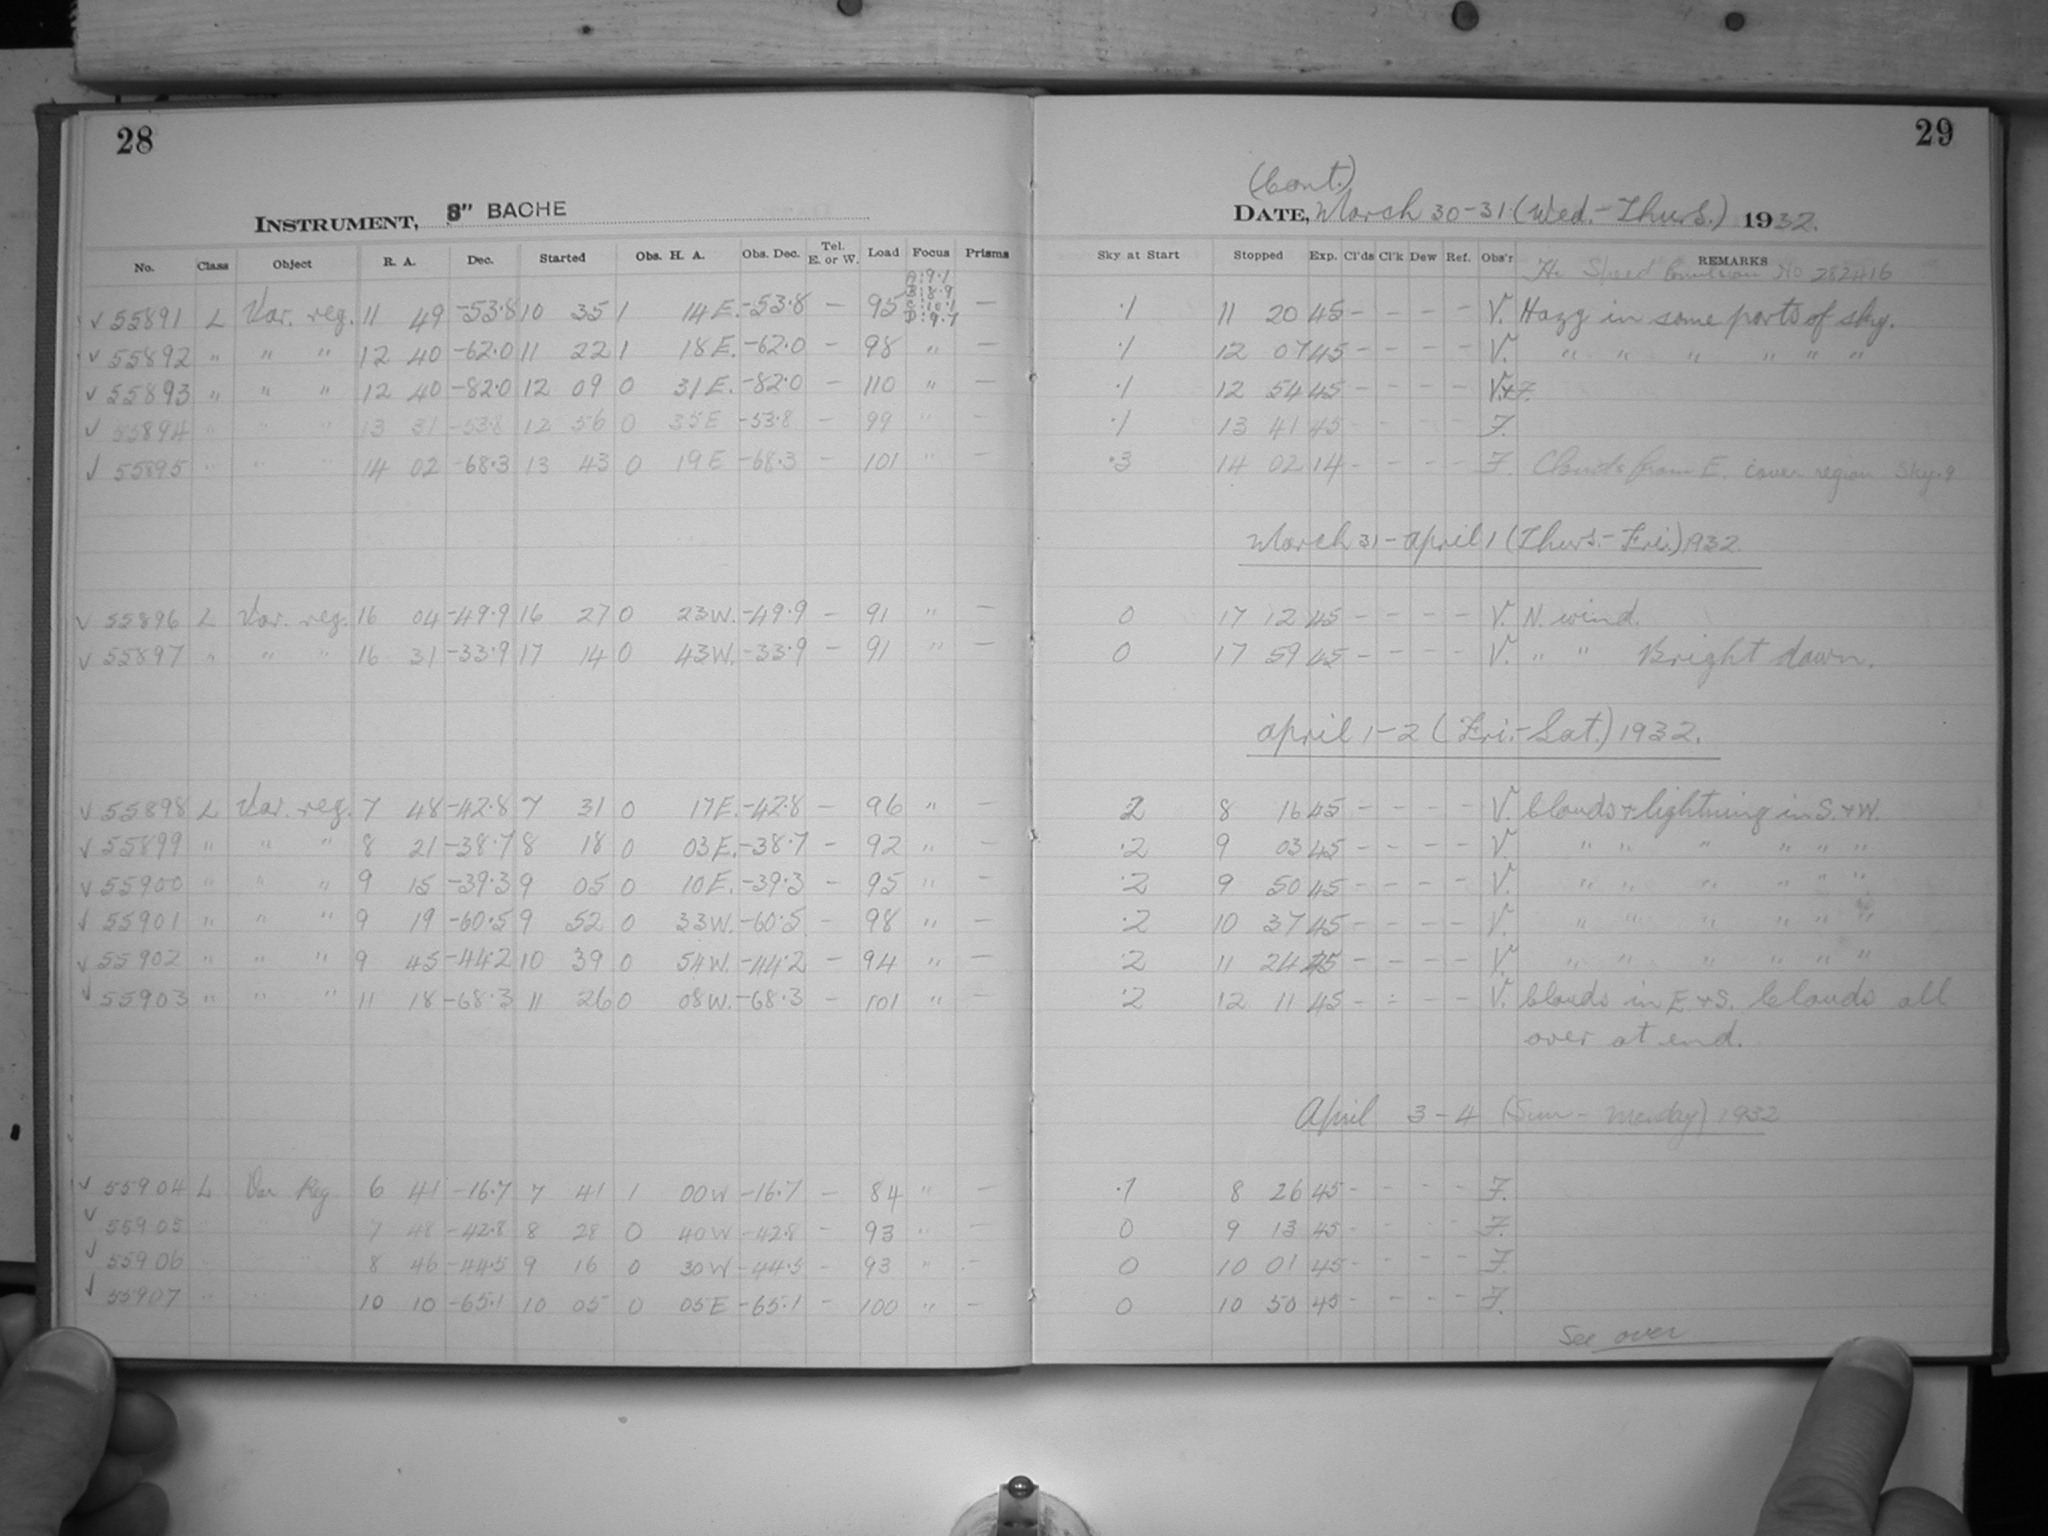 28
INSTRUMENT, 8" BACHE
No. Class Object R. A. Dec. Started Obs. H. A. Obs. Dec. Tel. E. or W. Load Focus Prisms
A: 9.1
B: 8.9
C: 10.1
D: 9.7
√ 55891 L Var. reg. 11 49 -53.8 10 35 1 14 E. -53.8 - 95 -
√ 55892 " " " 12 40 -62.0 11 22 1 18 E. -62.0 - 98 " -
√ 55893 " " " 12 40 -82.0 12 09 0 31 E. -82.0 - 110 " -
√ 55894 " " " 13 31 -53.8 12 56 0 35 E -53.8 - 99 " -
√ 55895 " " " 14 02 -68.3 13 43 0 19 E -68.3 - 101 " -
√ 55896 L Var. reg. 16 04 -49.9 16 27 0 23 W. -49.9 - 91 " -
√ 55897 " " " 16 31 -33.9 17 14 0 43 W. -33.9 - 91 " -
√ 55898 L Var. reg. 7 48 -42.8 7 31 0 17 E. -42.8 - 96 " -
√ 55899 " " " 8 21 -38.7 8 18 0 03 E. -38.7 - 92 " -
√ 55900 " " " 9 15 -39.3 9 05 0 10 E. -39.3 - 95 " -
√ 55901 " " " 9 19 -60.5 9 52 0 33 W. -60.5 - 98 " -
√ 55902 " " " 9 45 -44.2 10 39 0 54 W. -44.2 - 94 " -
√ 55903 " " " 11 18 -68.3 11 26 0 08 W. -68.3 - 101 " -
√ 55904 L Var Reg 6 41 -16.7 7 41 1 00 W -16.7 - 84 " -
√ 55905 " " " 7 48 -42.8 8 28 0 40 W -42.8 - 93 " -
√ 55906 " " " 8 46 -44.5 9 16 0 30 W -44.5 - 93 " -
√ 55907 " " " 10 10 -65.1 10 05 0 05 E -65.1 - 100 " -
29
(Cont.)
DATE, March 30-31 (Wed.-Thurs.) 1932.
Sky at Start Stopped Exp. Cl'ds Cl'k Dew Ref. Obs'r REMARKS
Hi Speed Emulsion No 282416
.1 11 20 45 - - - - V. Hazy in some parts of sky.
.1 12 07 45 - - - - V. " " " " " "
.1 12 54 45 - - - - V.+F.
.1 13 41 45 - - - - F.
.3 14 02 14 - - - - F. Clouds from E. cover region Sky .9
March 31 - April 1 (Thurs.-Fri.) 1932.
0 17 12 45 - - - - V. N. wind.
0 17 59 45 - - - - V. " " Bright dawn.
April 1-2 (Fri.-Sat.) 1932.
.2 8 16 45 - - - - V. Clouds + lightning in S. + W.
.2 9 03 45 - - - - V. " " " " " "
.2 9 50 45 - - - - V. " " " " " "
.2 10 37 45 - - - - V. " " " " " "
.2 11 24 45 - - - - V. " " " " " "
.2 12 11 45 - - - - V. Clouds in E + S. Clouds all
over at end.
April 3-4 (Sun - Monday) 1932
.1 8 26 45 - - - - F.
0 9 13 45 - - - - F.
0 10 01 45 - - - - F.
0 10 50 45 - - - - F.
See over